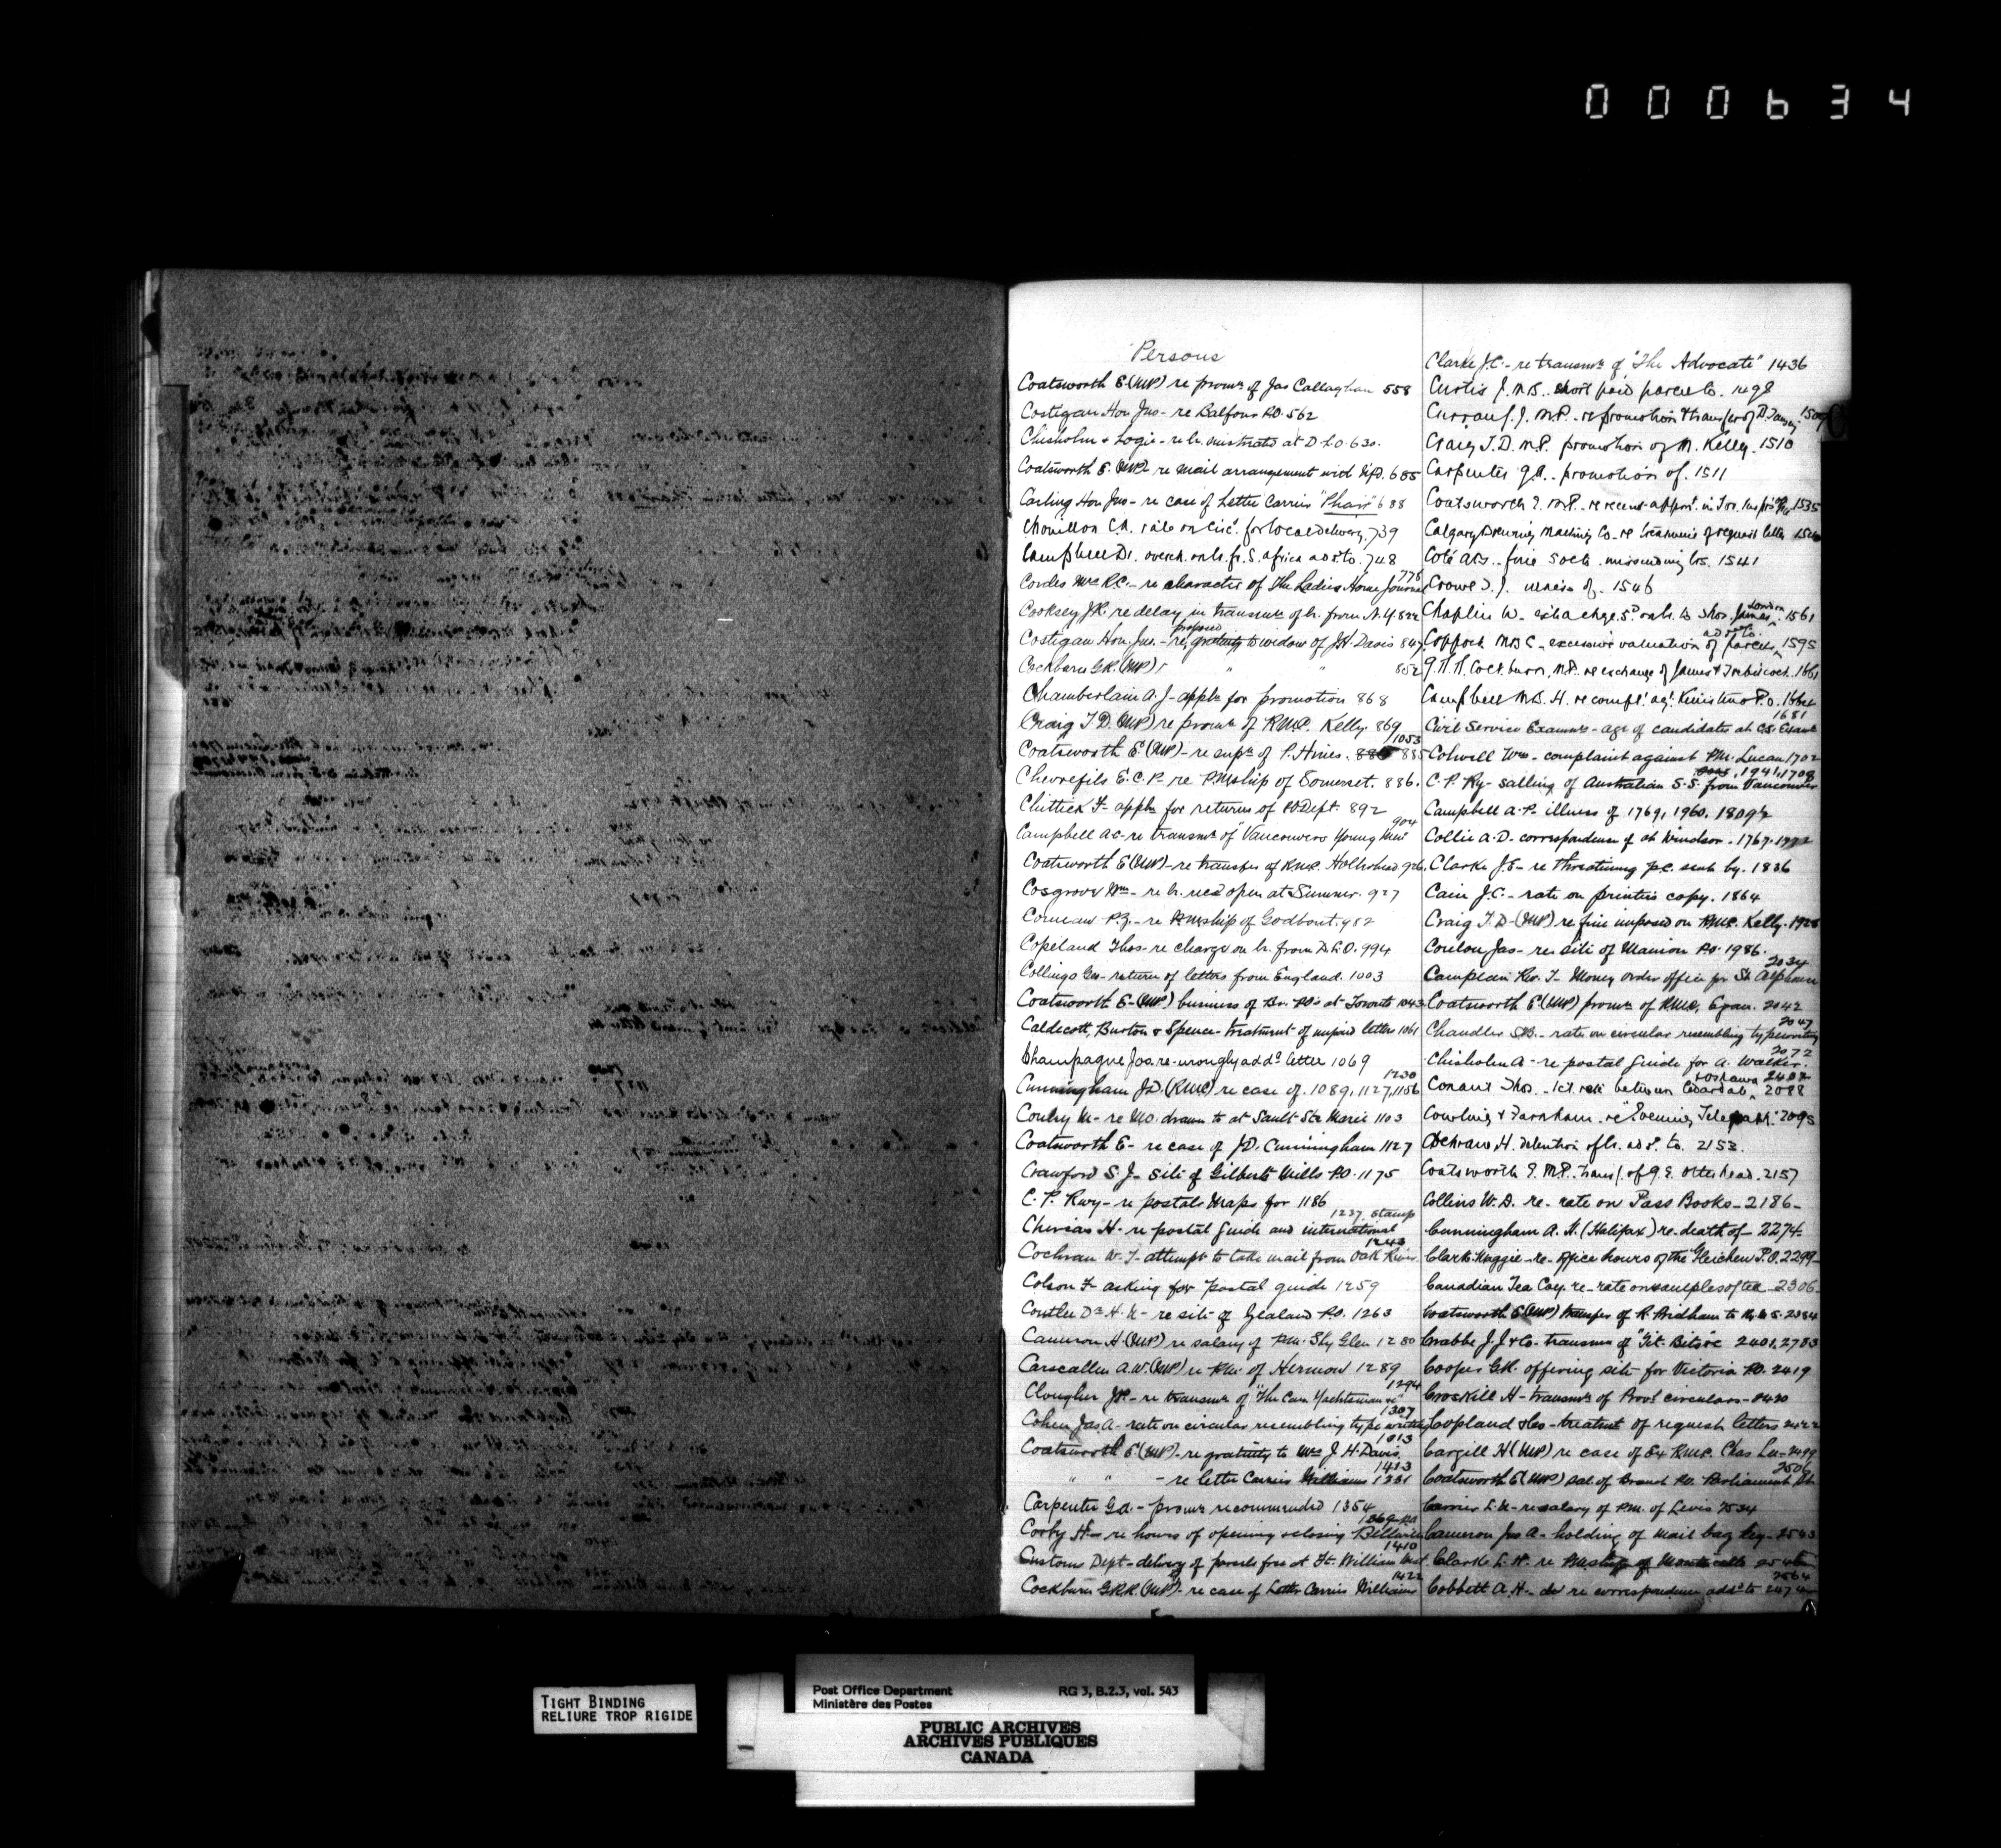 000634
Persons
Coatsworth E (MP) re promn of Jas Callaghan 558
Costigan Hon Jno - re Balfour P.O. 562
Chisholm & Logie - re lr. mistreated at D.L.O. 630.
Coatsworth E. (MP) re mail arrangement with 685
Carling Hon Jno - re case of Letter Carrier "Phair" 688
Chouillon C.A. rate on Circ. for local delivery. 739
Campbell D. overch. on lr. fr. S. Africa add. to. 748
Cordes Mrs R.C. - re character of The Ladies Home Journal 776
Cooksey J.R. re delay in transmn of lr. from N.Y. 822
Costigan Hon. Jno. - re proposed gratuity to widow of J.H. Davis 847
Cockburn G.R. (MP) " " 852
Chamberlain A.J - appln for promotion 868
Craig T.D. (MP) re promn of R.M.C. Kelly 869
Coatsworth E. (MP) - re supn of P. Hines. 885 1053
Chevrefils E.C.P. re PMship of Somerset. 886.
Chittick F - appln for returns of P.O. Dept. 892
Campbell A C - re transmn of "Vancouvers Young Men" 904
Coatsworth E (MP) - re transfer of R.M.C. 926
Cosgrove Wm - re lr. recd open at Sumner. 927
Comeau P.Z. - re PMship of Godbout. 982
Copeland Thos - re charge on lr. from D.L.O. 994
Collings Geo - return of letters from England. 1003
Coatsworth E - (MP) business of Br. POs at Toronto 1043
Caldecott, Burton & Spence - treatment of unpaid letters 1061
Champagne Jos. re wrongly addd letter 1069
Cunningham J.D. (RMC) re case of. 1089, 1127, 1156 1230
Coulry M - re M.O. drawn to at Sault Ste Marie 1103
Coatsworth E - re case of J.D. Cunningham 1127
Crawford S.J - site of Gilberts Mills P.O. 1175
C.P. Rwy - re postal maps for 1186
H - re postal Guide and international stamp 1237.
Cochran W.J - attempt to take mail from Oak River 1243
Colson F asking for postal guide 1259
Coutler Dr H.N - re site of Zealand P.O. 1263
Cameron H. (MP) re salary of P.M. Sky Glen 1280
Carscallen A.W. (MP) re P.M. of Hermon 1289
Clougher J.P. - re transmn of "The Can. Yachtsman &c" 1294
Cohen Jas. A - rate on circular resembling type writing 1307
Coatsworth E (MP) - re gratuity to Mrs J.H. Davis 1313
" " - re letter Carrier Williams 1331 1413
Carpenter G.A. - promn recommended 1354
Corby H - re hours of opening & closing Belleville P.O. 1369
Customs Dept - delivery of parcels free at Ft. William West 1410
Cockburn G.R.R. (MP) - re case of Letter Carrier Williams 1422
Clarke J.C. - re transmn of "The Advocate" 1436
Curtis J. Mrs. short paid parcel to. 1498
Curran J.J. M.P. re promotion & transfer of D. 1509
Craig T.D. M.P. promotion of M. Kelly. 1510
Carpenter G.A. promotion of. 1511
Coatsworth E. M.P. re recent appmt. in Tor. Inspr's Office 1535
Calgary Brewing Malting Co. re treatment of request letters
Coté A.B. fine 5 octs missending lrs. 1541
Crowe D.J. illness of. 1546
Chaplin W. extra chge. 5c on lr. to Thos. James London 1561
Coppock Mrs C. excessive valuation of parcels addd to. 1595
G.R.R. Cockburn, M.P. re exchange of James & Trebilcock. 1661
Campbell Mrs. H. re complt. agt. Kinistino P.O. 1664
Civil Service Examns - age of candidates at C.S. Exams 1681
Colwell Wm - complaint against P.M. Lucan 1702
C.P. Ry - sailing of Australian S.S. from Vancouver 1941, 1708
Campbell A.P. illness of 1769, 1960. 1809½
Collie A.D. correspondence of at Windsor. 1767. 1772
Clarke J.E - re threatening p.c. sent by. 1836
Cain J.C. - rate on printers copy. 1864
Craig T.D - (MP) re fine imposed on R.M.C. Kelly. 1928
Coulon Jas - re site of Manion P.O. 1986.
Campeau Rev. T - Money Order office for St Alphonse 2034
Coatsworth E (MP) promn of R.M.C. Egan. 2042
Chandler S.B. - rate on circular resembling typewriting 2047
Chisholm A - re postal Guide for A. Walker. 2072
Conant Thos. 1ct rate between Cedardale & Oshawa 2088 2407
Cowling & Farnham. re "Evening Telegram" 2095
Cochrane, H. detention of lr. addd. to. 2153.
Coatsworth E. M.P. transf. of G.E. Otterhead. 2157
Collins W.D. re - rate on Pass Books - 2186 -
Cunningham A.H. (Halifax) re - death of - 2274 -
Clark Maggie - re - office hours of the Gleichen P.O. 2299 -
Canadian Tea Coy. re - rate on samples of tea - 2306 -
Coatsworth E (MP) transfer of R. Pridham to 2384
Crabbe J.J & Co - transmn of "Tit-Bits" &c 2401, 2783
Cooper G.R. offering site for Victoria P.O. 2419
Croskill H - transmn of Provl circulars - 2420
Copland & Co - treatmt of request letters 2422
Cargill H (MP) re case of Ex R.M.C. Chas 2499
Coatsworth E (MP) sal. of Branch P.O. Parliament St. 2506
Carrier L.N - re salary of P.M. of Levis 2534
Cameron Jno A - holding of mail bag key - 2543
Clarke L.H. re PMship of Monticello 2546
Cobbett A.H - re correspondence addd to 2474 2564
TIGHT BINDING
RELIURE TROP RIGIDE
Post Office Department RG 3, B.2.3, vol. 543
Ministère des Postes
PUBLIC ARCHIVES
ARCHIVES PUBLIQUES
CANADA